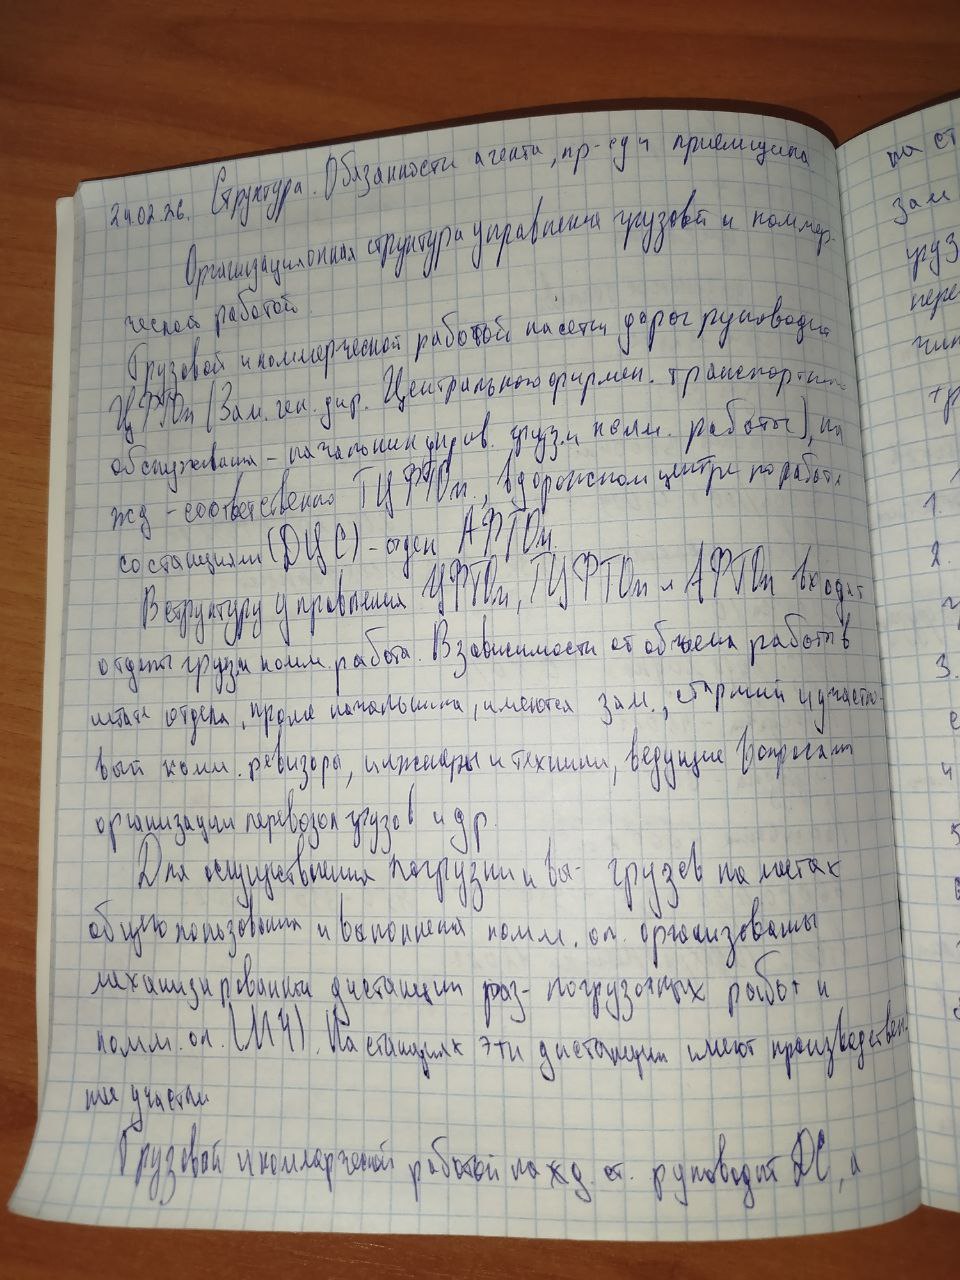 24.02.26. Структура. Обязанности агента, пр-сд и приемщика.
Организационная структура управления грузовой и коммер-
ческой работой.
Грузовой и коммерческой работой на сети дорог руководит
ЦФТОм (Зам. ген. дир. Центрального фирмен. транспортного
обслуживания - начальник упров. груз. и комм. работы), на
жд - соответственно ТЦФТОм., в дорожном центре по работе
со станциями (ДЦС) - отдел АФТОм.
В структуру управления ЦФТОм, ТЦФТОм и АФТОм входят
отделы груз и комм. работа. В зависимости от объема работы в
штате отдела, кроме начальника, имеются зам., старший и участко-
вый комм. ревизоры, инженеры и техники, ведущие вопросами
организации перевозок грузов и др.
Для осуществления погрузки и вы- грузов на местах
общего пользования и выполнения комм. оп. организованы
механизированные дистанции раз- погрузочных работ и
комм. оп. (МЧ). На станциях эти дистанции имеют производствен-
ные участки
Грузовой и коммерческой работой на жд. ст. руководит ДС, а
на ст
зам
груз
пере
1.
2.
3.